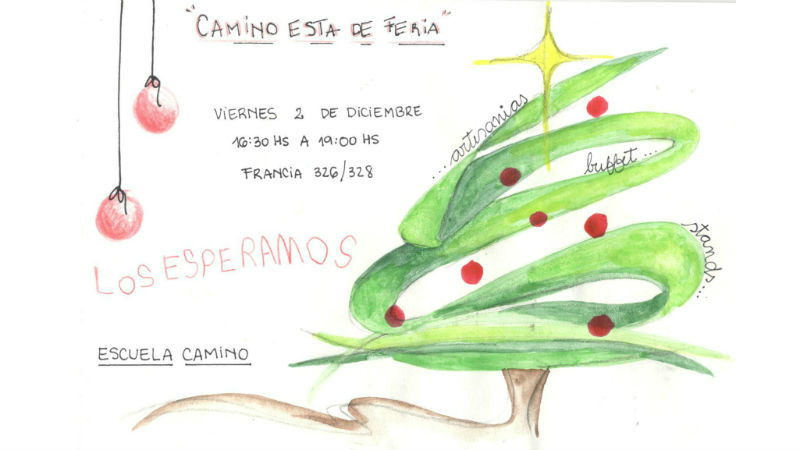 "CAMINO ESTA DE FERIA"
VIERNES 2 DE DICIEMBRE
16:30 HS A 19:00 HS
FRANCIA 326/328
...artesanias
buffet...
stands...
LOS ESPERAMOS
ESCUELA CAMINO